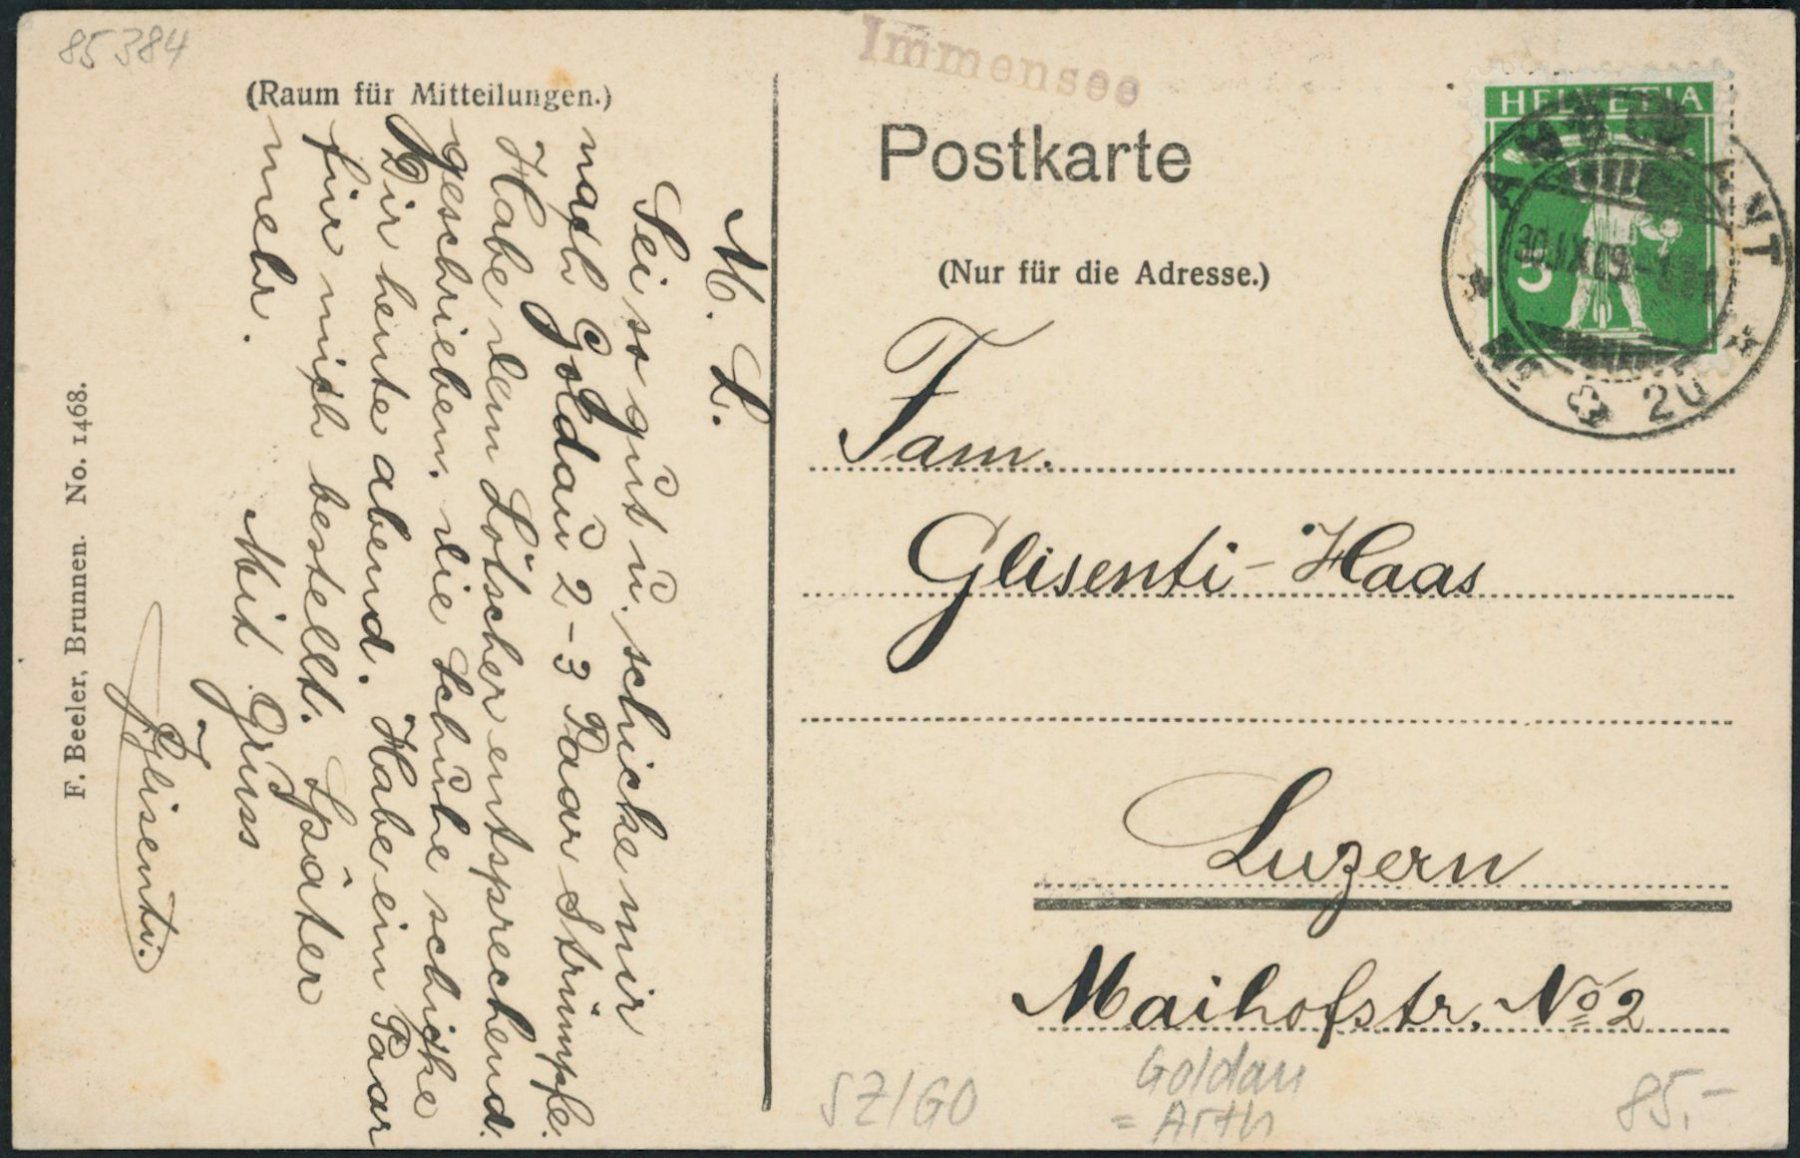 85384
Immensee
(Raum für Mitteilungen.)
Postkarte
(Nur für die Adresse.)
HELVETIA
5
AMBULANT
20
M. L.
Sei so gut u. schicke mir
nach Goldau 2-3 Paar Strümpfe.
Habe dem Lötscher entsprechend
geschrieben, die Schuhe schicke
Dir heute abend. Habe ein Paar
für mich bestellt. Später
mehr.
Mit Gruss
Glisenti.
Fam.
Glisenti-Haas
Luzern
Maihofstr. No 2
F. Beeler, Brunnen. No. 1468.
SZ/GO
Goldau
= Arth
85.-